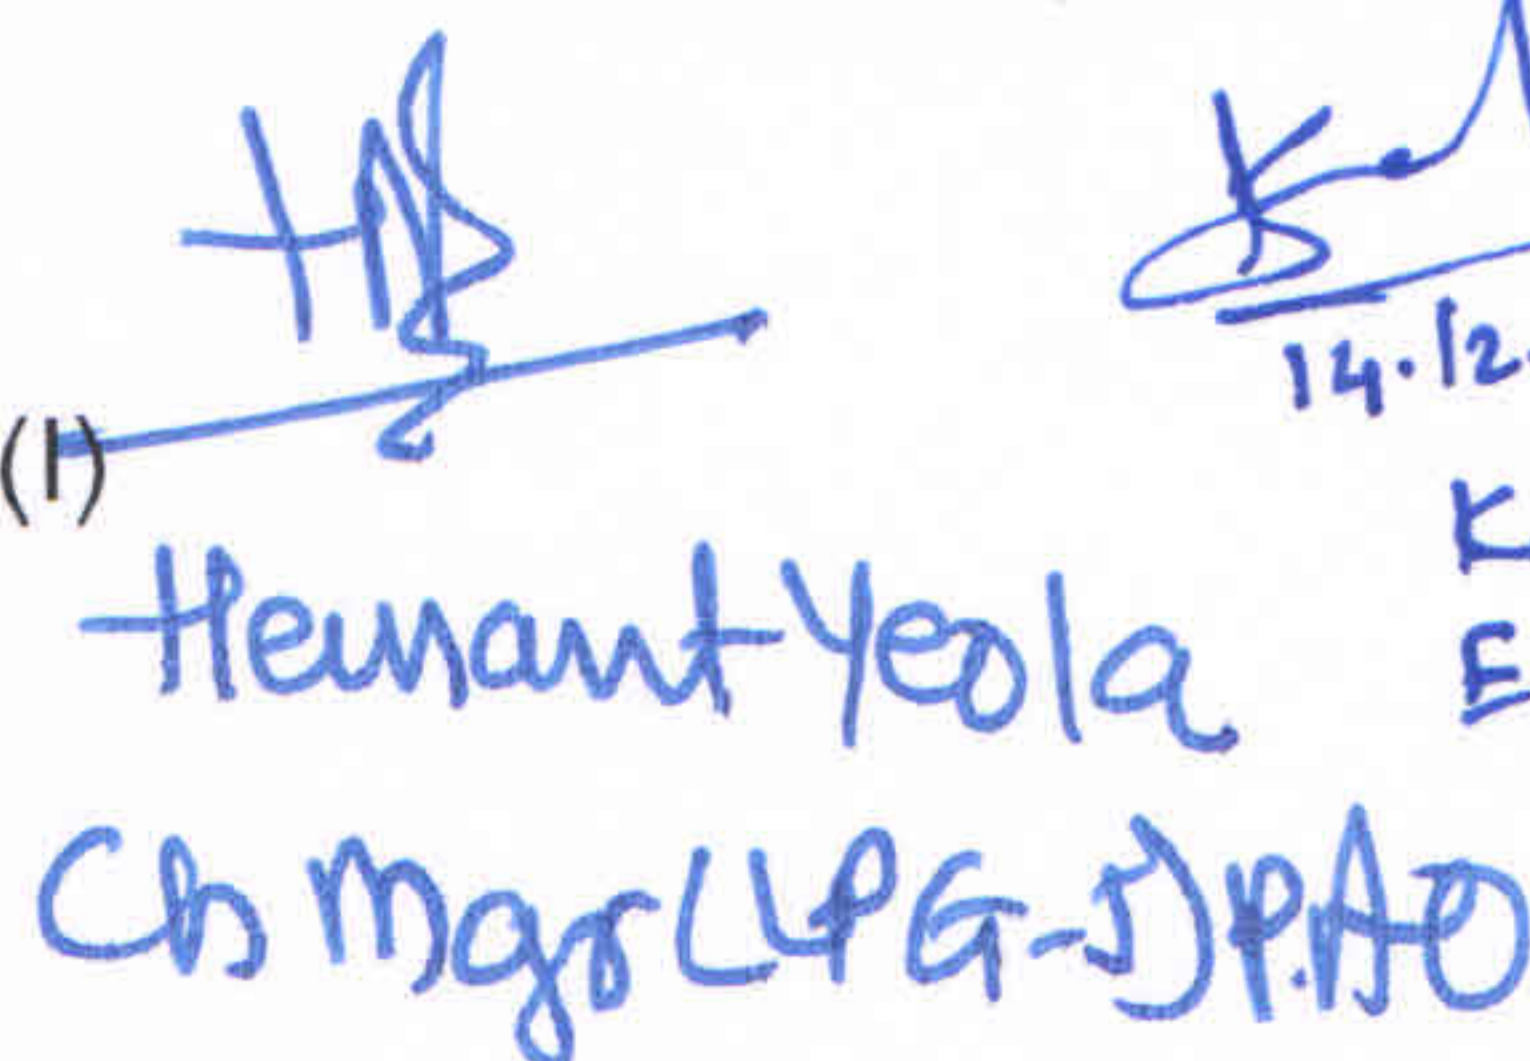 14.12.
(1)
K
Hemant Yeola
E
Ch Mgr (LPG-S) P.AO